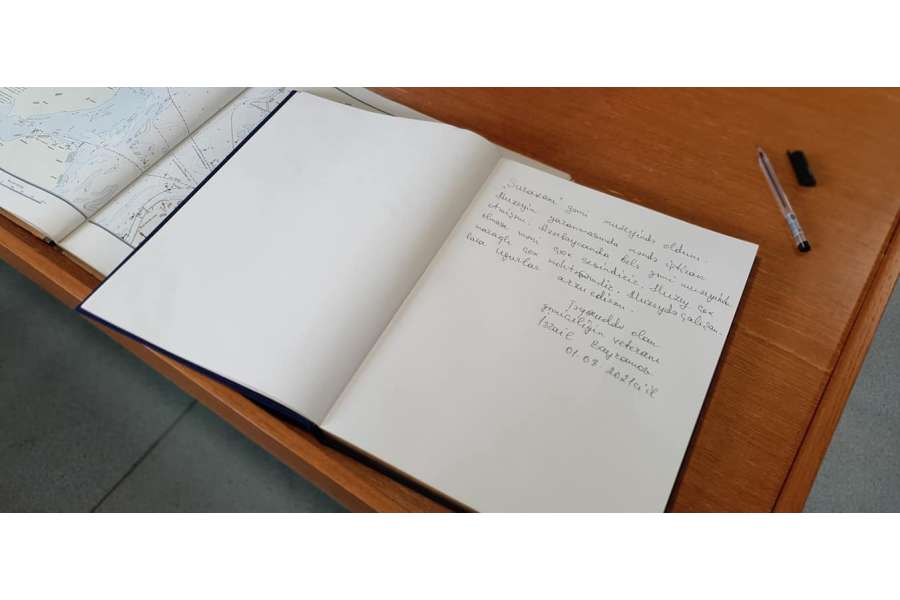 "Suraxanı" gəmi muzeyində oldum.
Muzeyin yaranmasında məndə iştirak
etmişəm. Azərbaycanda belə gəmi muzeyinin
olması məni çox sevindirir. Muzey çox
maraqlı çox möhtəşəmdir. Muzeydə çalışan-
lara uğurlar arzu edirəm.
olan
gəmiçiliyin veteranı
İsrail Bayramov
2021ci il